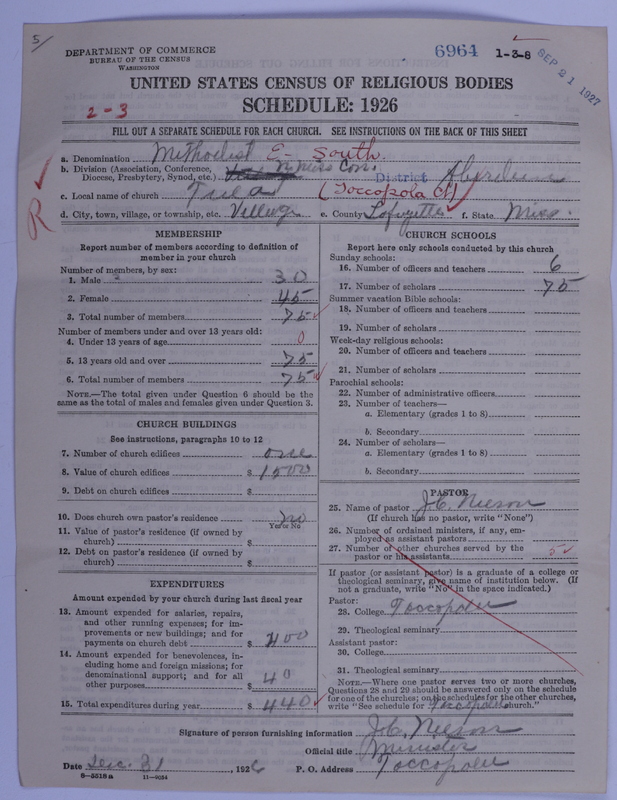 5/
DEPARTMENT OF COMMERCE
BUREAU OF THE CENSUS
WASHINGTON
6964 1-3-8
SEP 21 1927
UNITED STATES CENSUS OF RELIGIOUS BODIES
2-3
SCHEDULE: 1926
FILL OUT A SEPARATE SCHEDULE FOR EACH CHURCH. SEE INSTRUCTIONS ON THE BACK OF THIS SHEET
a. Denomination Methodist E- South.
b. Division (Association, Conference, Diocese, Presbytery, Synod, etc.) N. Miss Con. District Aberdeen
c. Local name of church Tula (Toccopola Ct)
R
d. City, town, village, or township, etc. Village e. County Lafayette f. State Miss.
MEMBERSHIP
Report number of members according to definition of
member in your church
Number of members, by sex:
1. Male 30
2. Female 45
3. Total number of members 75
Number of members under and over 13 years old:
4. Under 13 years of age 0
5. 13 years old and over 75
6. Total number of members 75
NOTE.—The total given under Question 6 should be
same as the total of males and females given under Question 3.
CHURCH BUILDINGS
See instructions, paragraphs 10 to 12
7. Number of church edifices one
8. Value of church edifices $ 1500
9. Debt on church edifices $
10. Does church own pastor's residence no
Yes or No
11. Value of pastor's residence (if owned by
church) $
12. Debt on pastor's residence (if owned by
church) $
EXPENDITURES
Amount expended by your church during last fiscal year
13. Amount expended for salaries, repairs,
and other running expenses; for im-
provements or new buildings; and for
payments on church debt $ 400
14. Amount expended for benevolences, in-
cluding home and foreign missions; for
denominational support; and for all
other purposes $ 40
15. Total expenditures during year $ 440
CHURCH SCHOOLS
Report here only schools conducted by this church
Sunday schools:
16. Number of officers and teachers 6
17. Number of scholars 75
Summer vacation Bible schools:
18. Number of officers and teachers
19. Number of scholars
Week-day religious schools:
20. Number of officers and teachers
21. Number of scholars
Parochial schools:
22. Number of administrative officers
23. Number of teachers—
a. Elementary (grades 1 to 8)
b. Secondary
24. Number of scholars—
a. Elementary (grades 1 to 8)
b. Secondary
PASTOR
25. Name of pastor J.C. Nelson
(If church has no pastor, write "None")
26. Number of ordained ministers, if any, em-
ployed as assistant pastors
27. Number of other churches served by the
pastor or his assistants 5
If pastor (or assistant pastor) is a graduate of a college or
theological seminary, give name of institution below. (If
not a graduate, write "No" in the space indicated.)
Pastor:
28. College Toccopola
29. Theological seminary
Assistant pastor:
30. College
31. Theological seminary
NOTE.—Where one pastor serves two or more churches,
Questions 28 and 29 should be answered only on the schedule
for one of the churches; on the schedules for the other churches,
write "See schedule for Toccopola church."
Signature of person furnishing information J.C. Nelson
Official title Minister
Date Dec. 31, 1926 P. O. Address Toccopola
8-5518 a 11-9054